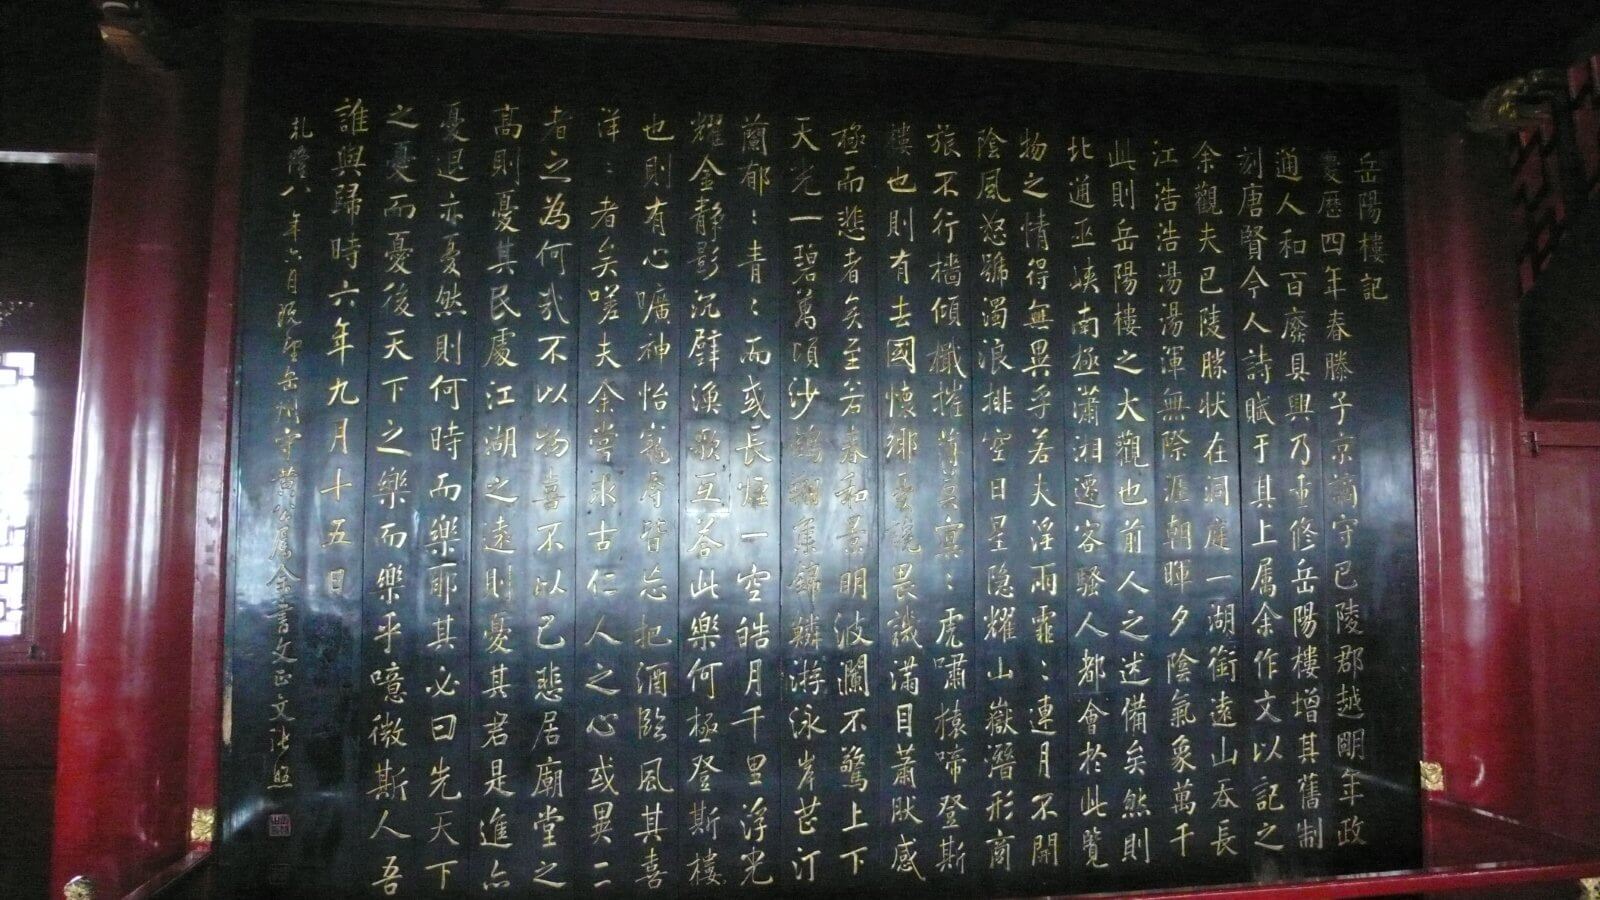 岳陽樓記
慶歷四年春滕子京謫守巴陵郡越明年政
通人和百廢具興乃重修岳陽樓增其舊制
刻唐賢今人詩賦于其上属余作文以記之
余觀夫巴陵勝状在洞庭一湖銜遠山吞長
江浩浩湯湯渾無際涯朝暉夕陰氣象萬千
此則岳陽樓之大觀也前人之述備矣然則
北通巫峡南極瀟湘遷客騷人都會於此覽
物之情得無異乎若夫淫雨霏〻連月不開
陰風怒號濁浪排空日星隐耀山嶽潛形商
旅不行檣傾檝摧薄暮冥〻虎嘯猿啼登斯
樓也則有去國懷鄉憂讒畏譏滿目蕭肰感
極而悲者矣至若春和景明波瀾不驚上下
天光一碧萬頃沙鷗翔集錦鱗游泳岸芷汀
蘭郁〻青〻而或長煙一空皓月千里浮光
耀金静影沉璧漁歌互答此樂何極登斯樓
也則有心曠神怡寵辱皆忘把酒臨風其喜
洋〻者矣嗟夫余嘗求古仁人之心或異二
者之為何哉不以物喜不以己悲居廟堂之
高則憂其民處江湖之遠則憂其君是進亦
憂退亦憂然則何時而樂耶其必曰先天下
之憂而憂後天下之樂而樂乎噫微斯人吾
誰與歸時六年九月十五日
乹隆八年六月既望岳州守黄公属余書文正文張照